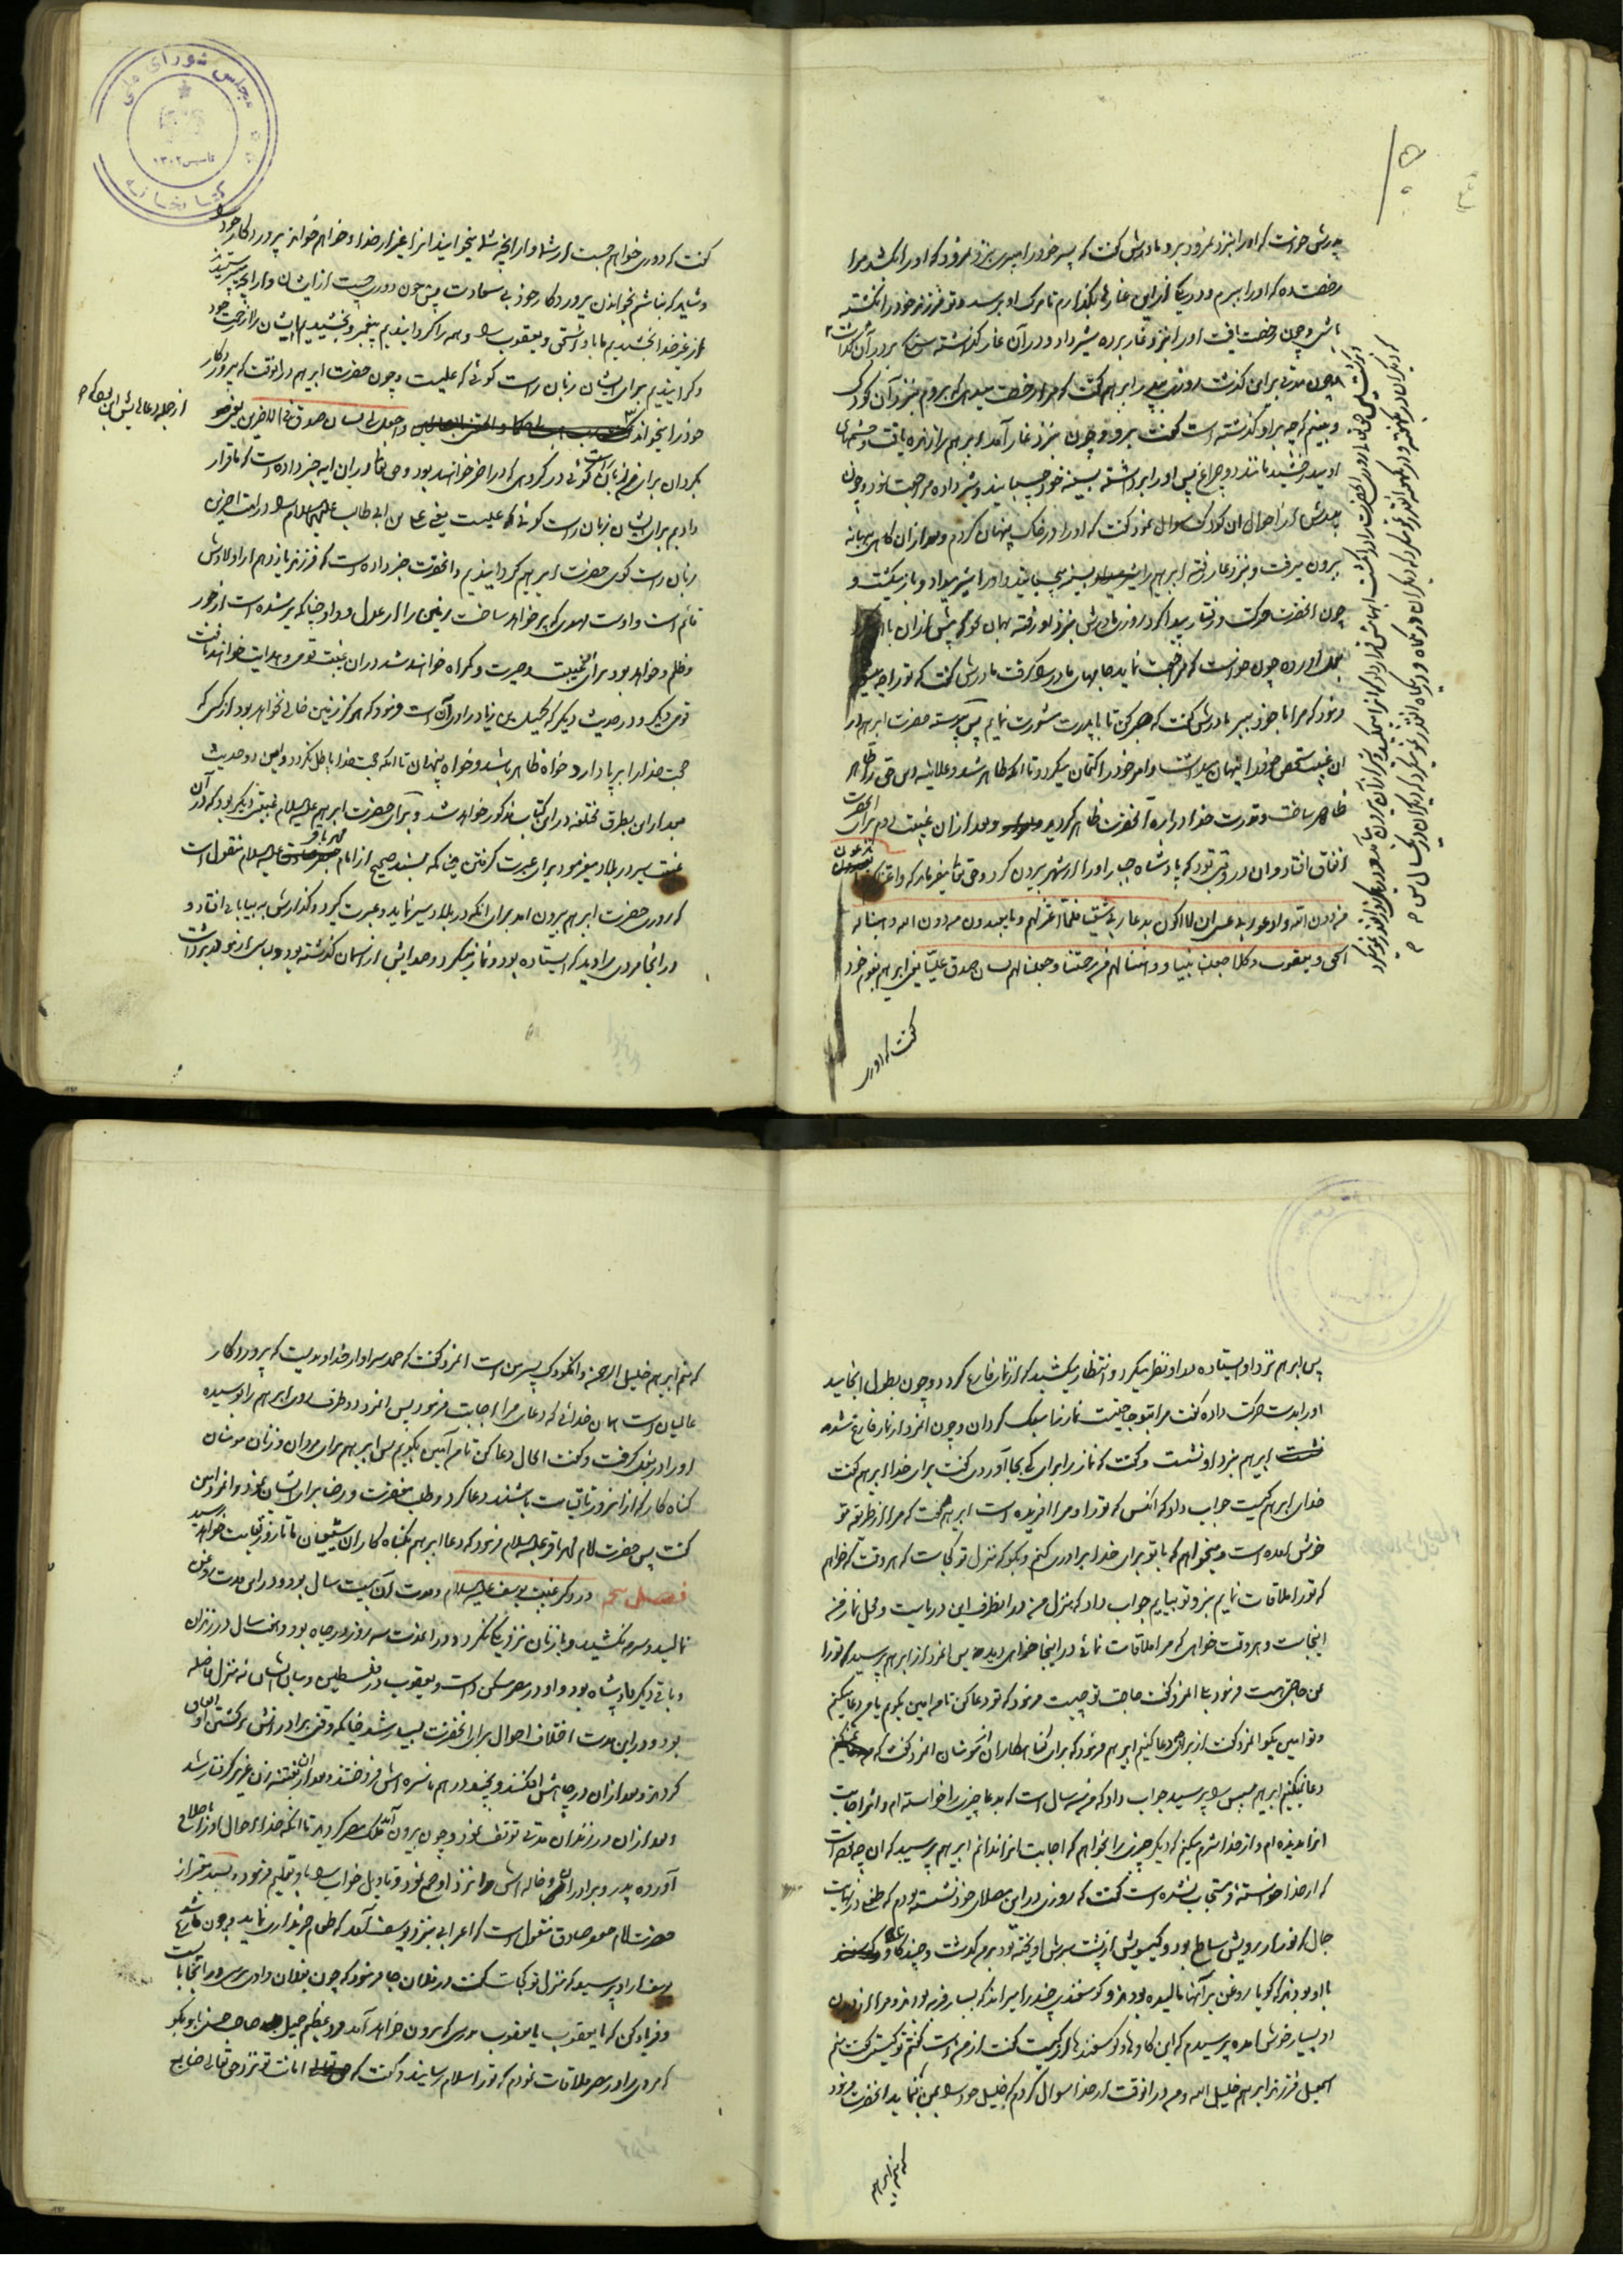 پدرش خواست که او را بنزد نمرود برد مادرش گفت که پسر خود را مبر بنزد نمرود که او را بکشد مرا
رخصت ده که او را ببرم و در یکی از این غارها بگذارم تا مرگ او برسد و تو فرزند خود را نکشته
باشی و چون رخصت یافت او را بنزد غار برده شیر داد و در آن غار گذاشته سنگ بر در آن گذاشت
و چون مدتی بر این گذشت روزی به پدر ابراهیم گفت که مرا رخصت میدهی که بروم بنزد آن کودک
و ببینم که چه بر او گذشته است گفت برو و چون بنزد غار آمد ابراهیم را زنده یافت و چشمهای
او میدرخشید مانند دو چراغ پس او را برداشته بسینه خود چسبانید و شیر داده مراجعت نمود و چون
پدرش از احوال آن کودک سوال نمود گفت که او را در خاک پنهان کردم و بعد از آن گاهی ببهانه
بیرون میرفت و بنزد غار رفته ابراهیم را بسینه میچسبانید و او را شیر میداد و باز میگشت و
چون آنحضرت بحرکت و رفتار پیدا کرد روزی مادرش بنزد او رفته بهمان نحو که پیش از آن با او
بعمل آورده چون خواست که مراجعت نماید جامهای مادر را گرفت مادرش گفت که تو را چه میشود
فرمود که مرا با خود ببر مادرش گفت که صبر کن تا با پدرت مشورت نمایم پس پیوسته حضرت ابراهیم در
آن غیبت شخص خود را پنهان میداشت و امر خود را کتمان میکرد تا آنکه ظاهر شد و علانیه دین حق را ظاهر
ظاهر ساخت و قدرت خدا درباره آنحضرت ظاهر گردید و بعد از آن غیبت دوم برای آنحضرت
اتفاق افتاد و آن در وقتی بود که پادشاه جبار او را از شهر بیرون کرد و حق تعالی میفرماید که و اعتزلکم و ما تدعون
من دون الله و ادعو ربی عسی ان لا اکون بدعاء ربی شقیا فلما اعتزلهم و ما یعبدون من دون الله وهبنا له
اسحق و یعقوب و کلا جعلنا نبیا و وهبنا لهم من رحمتنا و جعلنا لهم لسان صدق علیا یعنی ابراهیم بقوم خود
گفت که دوری
گفت که دوری خواهم جست از شما و از آنچه شما میخوانید آنرا غیر از خدا و خواهم خواند پروردگار خود را
و شاید که نباشم بخواندن پروردگار خود بی سعادت پس چون دوری جست از ایشان و از آنچه میپرستیدند
از غیر خدا بخشیدیم ما باو اسحق و یعقوب را و همه را گردانیدیم پیغمبر و بخشیدیم ایشان را از رحمت خود
و گردانیدیم برای ایشان زبان راست گوئی که علیست و چون حضرت ابراهیم در آنوقت که پروردگار
خود را میخواند و اجعل لی لسان صدق فی الآخرین یعنی
بگردان برای من زبان راست گوئی در گروهی که در آخر خواهند بود و حق تعالی در این آیه خبر داده است که ما قرار
دادیم برای ایشان زبان راست گوئی که علیست یعنی علی بن ابی طالب علیهما السلام را در امت آخرین
زبان راست گوی حضرت ابراهیم گردانیدیم و آنحضرت خبر داده است که فرزند یازدهم از اولادش
قائم است و اوست مهدی که پر خواهد ساخت زمین را از عدل و داد چنانکه پر شده است از جور
و ظلم و خواهد بود برای او غیبت و حیرت و گمراه خواهند شد در آن غیبت قومی و هدایت خواهند یافت
قومی دیگر و در حدیث دیگر که کمیل بن زیاد راوی آن است فرمود که هرگز زمین خالی نخواهد بود از کسی که
حجت خدا را بر پا دارد خواه ظاهر باشد و خواه پنهان تا آنکه حجت خدا باطل نگردد و این دو حدیث
بعد از این بطرق مختلفه در این کتاب مذکور خواهد شد و برای حضرت ابراهیم علیه السلام غیبتی دیگر بود که در آن
غیبت سیر در بلاد میفرمود برای عبرت گرفتن چنانکه بسند صحیح از امام محمد باقر علیه السلام منقول است
که روزی حضرت ابراهیم بیرون آمد برای آنکه در بلاد سیر نماید و عبرت گیرد و گذارش به بیابانی افتاد و
در آنجا مردی را دید که ایستاده بود و نماز میکرد و صدایش از آسمان گذشته بود و لباس از مو
پس ابراهیم نزد او ایستاده باو نظر میکرد و انتظار میکشید که از نماز فارغ گردد و چون بطول انجامید
او را بدست حرکت داده گفت مرا بتو حاجتیست نماز را سبک گردان و چون آنمرد از نماز فارغ شد
ابراهیم بنزد او نشست و گفت که نماز را برای که بجا آوردی گفت برای خدا ابراهیم گفت
خدای ابراهیم کیست جواب داد که آنکس که تو را و مرا آفریده است ابراهیم گفت که مرا از طریقه تو
خوش آمده است و میخواهم که با تو برای خدا برادری کنم و بگو که منزل تو کجاست که هر وقت که خواهم
که تو را ملاقات نمایم بنزد تو بیایم جواب داد که منزل من در آنطرف این دریاست و محل نماز من
اینجاست و هر وقت خواهی که مرا ملاقات نمائی در اینجا خواهی دید پس آنمرد از ابراهیم پرسید که تو را
بمن حاجتی هست فرمود بلی آنمرد گفت حاجت تو چیست فرمود که تو دعا کن تا من آمین بگویم یا من دعا میکنم
و تو آمین بگو آنمرد گفت از برای چه دعا کنیم ابراهیم فرمود که برای گناهکاران از مومنان آنمرد گفت که
دعا نمیکنم ابراهیم سبب را پرسید جواب داد که من سه سال است که بدعا چیزی را خواسته ام و اثر اجابت
آنرا ندیده ام و از خدا شرم میکنم که دیگر چیزی را بخواهم که اجابت آنرا ندانم ابراهیم پرسید که آن چه چیز است
که از خدا خواسته و مستجاب نشده است گفت که روزی در این مصلای خود نشسته بودم که طفلی در نهایت
جمال که نور از رویش ساطع بود و گیسویش از پشت سرش آویخته بود بر من گذشت و چند گاو
با او بودند که گویا روغن بر آنها مالیده بودند و گوسفندی چند را میراند که بسیار فربه بودند و مرا از دیدن
او بسیار خوش آمده پرسیدم که این گاوها و گوسفندها از کیست گفت از من است گفتم تو کیستی گفت منم
اسمعیل فرزند ابراهیم خلیل الله و من در آنوقت از خدا سوال کردم که خلیل خود را بمن بنماید آنحضرت فرمود
که منم ابراهیم
که منم ابراهیم خلیل الرحمن و آنکودک پسر من است آنمرد گفت که حمد سزاوار خداوندیست که پروردگار
عالمیان است همان خدائی که دعای مرا اجابت فرمود پس آنمرد دو طرف روی ابراهیم را بوسیده
او را در بغل گرفت و گفت الحال دعا کن تا من آمین بگویم پس ابراهیم برای مردان و زنان مومنان
گناه کار که از آنروز تا قیامت باشند دعا کرد و طلب مغفرت و رضا برای ایشان نمود و آنمرد آمین
گفت پس حضرت امام محمد باقر علیه السلام فرمود که دعا ابراهیم بگناه کاران شیعیان ما تا روز قیامت خواهد رسید
فصل پنجم در ذکر غیبت یوسف علیه السلام و مدت آن بیست سال بود و در این مدت روغن
نمالید و سرمه نکشید و با زنان نزدیکی نکرد و در آنمدت سه روز در چاه بود و چند سال در زندان
و باقی دیگر پادشاه بود و او در مصر مسکن داشت و یعقوب در فلسطین و میان ایشان نه منزل فاصله
بود و در این مدت اختلاف احوال برای آنحضرت بسیار شد چنانکه وقتی برادرانش بر کشتن او اتفاق
کردند و بعد از آن در چاهش افکندند و بچند درهم ناسره اش فروختند و بعد از آن بفتنه زن عزیز گرفتار شد
و بعد از آن در زندان مدتی توقف نمود و چون بیرون آمد ملک مصر گردید تا آنکه خدای احوال او را باصلاح
آورده پدر و برادران و خاله اش را نزد او جمع نمود و تاویل خواب را باو تعلیم فرمود و بسند معتبر از
حضرت امام جعفر صادق منقول است که اعرابی بنزد یوسف آمد که طعام خریداری نماید و چون فارغ شد
یوسف از او پرسید که منزل تو کجاست گفت در فلان جا فرمود که چون بفلان وادی برسی در آنجا بایست
و فریاد کن که یا یعقوب یا یعقوب مردی که بیرون خواهد آمد مرد عظیم جمیل صاحب حسنی باو بگو
که مردی را در مصر ملاقات نمودم که تو را سلام رسانید و گفت که امانت تو نزد حق تعالی ضایع
مجلس شورای ملی
کتابخانه